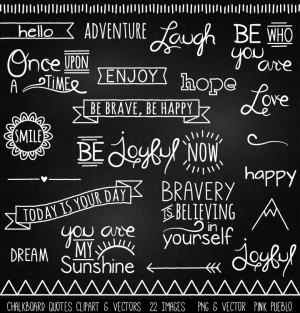 hello
ADVENTURE
Laugh
BE WHO
you are
Once UPON
A TIME
ENJOY
hope
Love
BE BRAVE, BE HAPPY
SMILE
BE Joyful NOW
happy
TODAY IS YOUR DAY
BRAVERY
IS BELIEVING
in
yourself
DREAM
you are
MY
Sunshine
joyful
CHALKBOARD QUOTES CLIPART & VECTORS 22 IMAGES PNG & VECTOR PINK PUEBLO